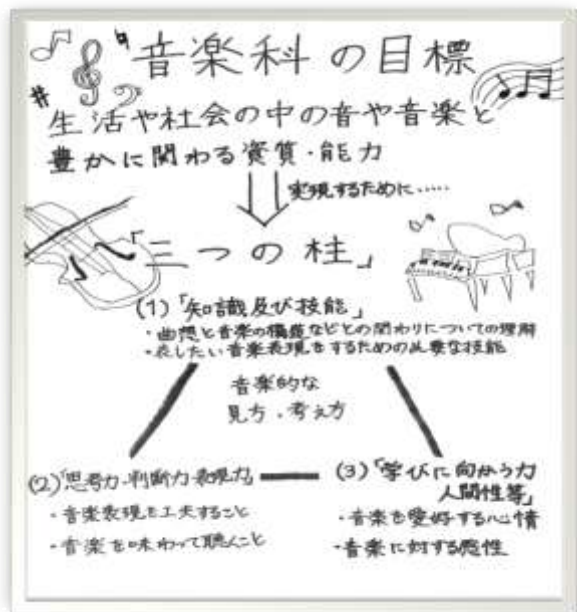 音楽科の目標
生活や社会の中の音や音楽と
豊かに関わる資質・能力
実現するために……
「三つの柱」
(1)「知識及び技能」
・曲想と音楽の構造などとの関わりについての理解
・表したい音楽表現をするための必要な技能
音楽的な
見方・考え方
(2)「思考力・判断力・表現力」
・音楽表現を工夫すること
・音楽を味わって聴くこと
(3)「学びに向かう力
人間性等」
・音楽を愛好する心情
・音楽に対する感性